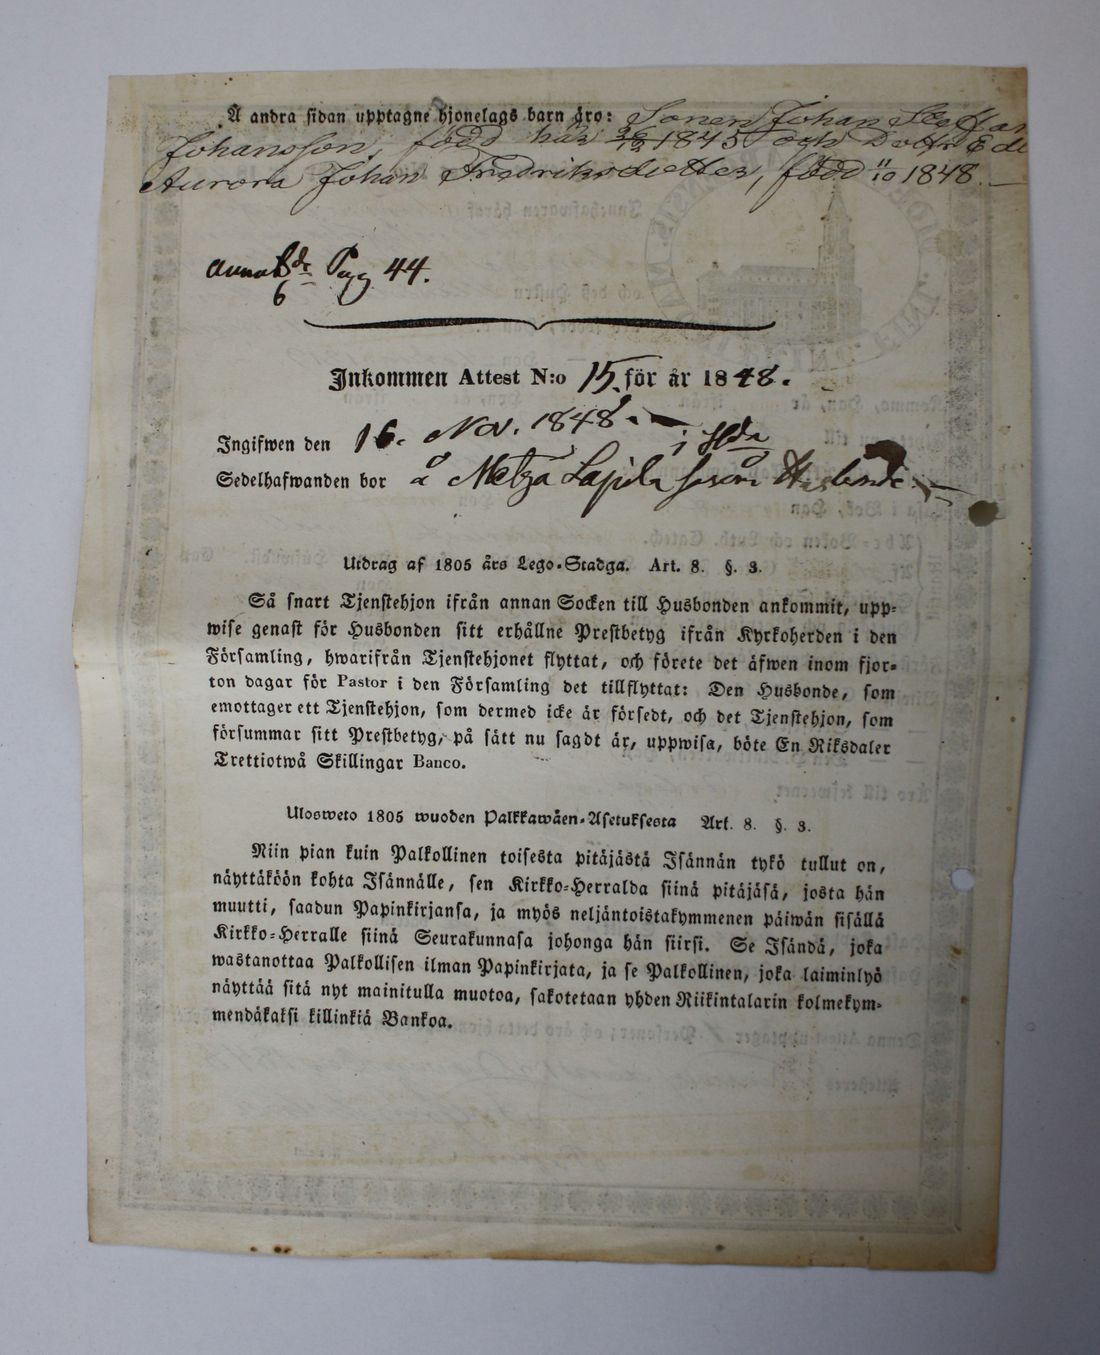 Å andra sidan upptagne hjonelags barn äro: Sonen Johan
Johansson, född här 26/12 1845 och Dottr
Aurora Johan Fredriksdotter, född 11/10 1848.
Pag 44.
6
Inkommen Attest N:o 15 för år 1848.
Ingifwen den 16. Nov. 1848.
Sedelhafwanden bor å
Utdrag af 1805 års Lego-Stadga. Art. 8. §. 3.
Så snart Tjenstehjon ifrån annan Socken till Husbonden ankommit, upp-
wise genast för Husbonden sitt erhållne Prestbetyg ifrån Kyrkoherden i den
Församling, hwarifrån Tjenstehjonet flyttat, och förete det äfwen inom fjor-
ton dagar för Pastor i den Församling det tillflyttat: Den Husbonde, som
emottager ett Tjenstehjon, som dermed icke är försedt, och det Tjenstehjon, som
försummar sitt Prestbetyg, på sätt nu sagdt är, uppwisa, böte En Riksdaler
Trettiotwå Skillingar Banco.
Ulosweto 1805 wuoden Palkkawäen-Asetuksesta Art. 8. §. 3.
Niin pian kuin Palkollinen toisesta pitäjästä Isännän tykö tullut on,
näyttäköön kohta Isännälle, sen Kirkko-Herralda siinä pitäjäsä, josta hän
muutti, saadun Papinkirjansa, ja myös neljäntoistakymmenen päiwän sisällä
Kirkko-Herralle siinä Seurakunnasa johonga hän siirsi. Se Isändä, joka
wastanottaa Palkollisen ilman Papinkirjata, ja se Palkollinen, joka laiminlyö
näyttää sitä nyt mainitulla muotoa, sakotetaan yhden Riikintalarin kolmekym-
mendäkaksi killinkiä Bankoa.